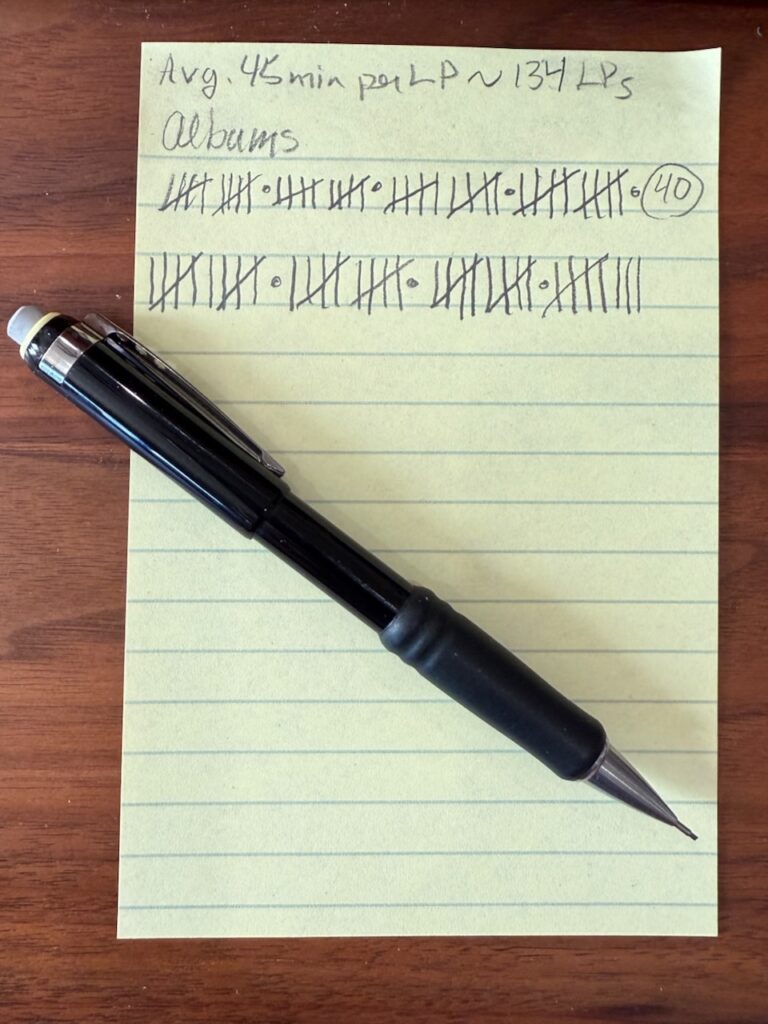 Avg. 45 min per LP ~ 134 LPs
Albums
𝍸 𝍸 • 𝍸 𝍸 • 𝍸 𝍸 • 𝍸 𝍸 • 40
𝍸 𝍸 • 𝍸 𝍸 • 𝍸 𝍸 • 𝍸 |||